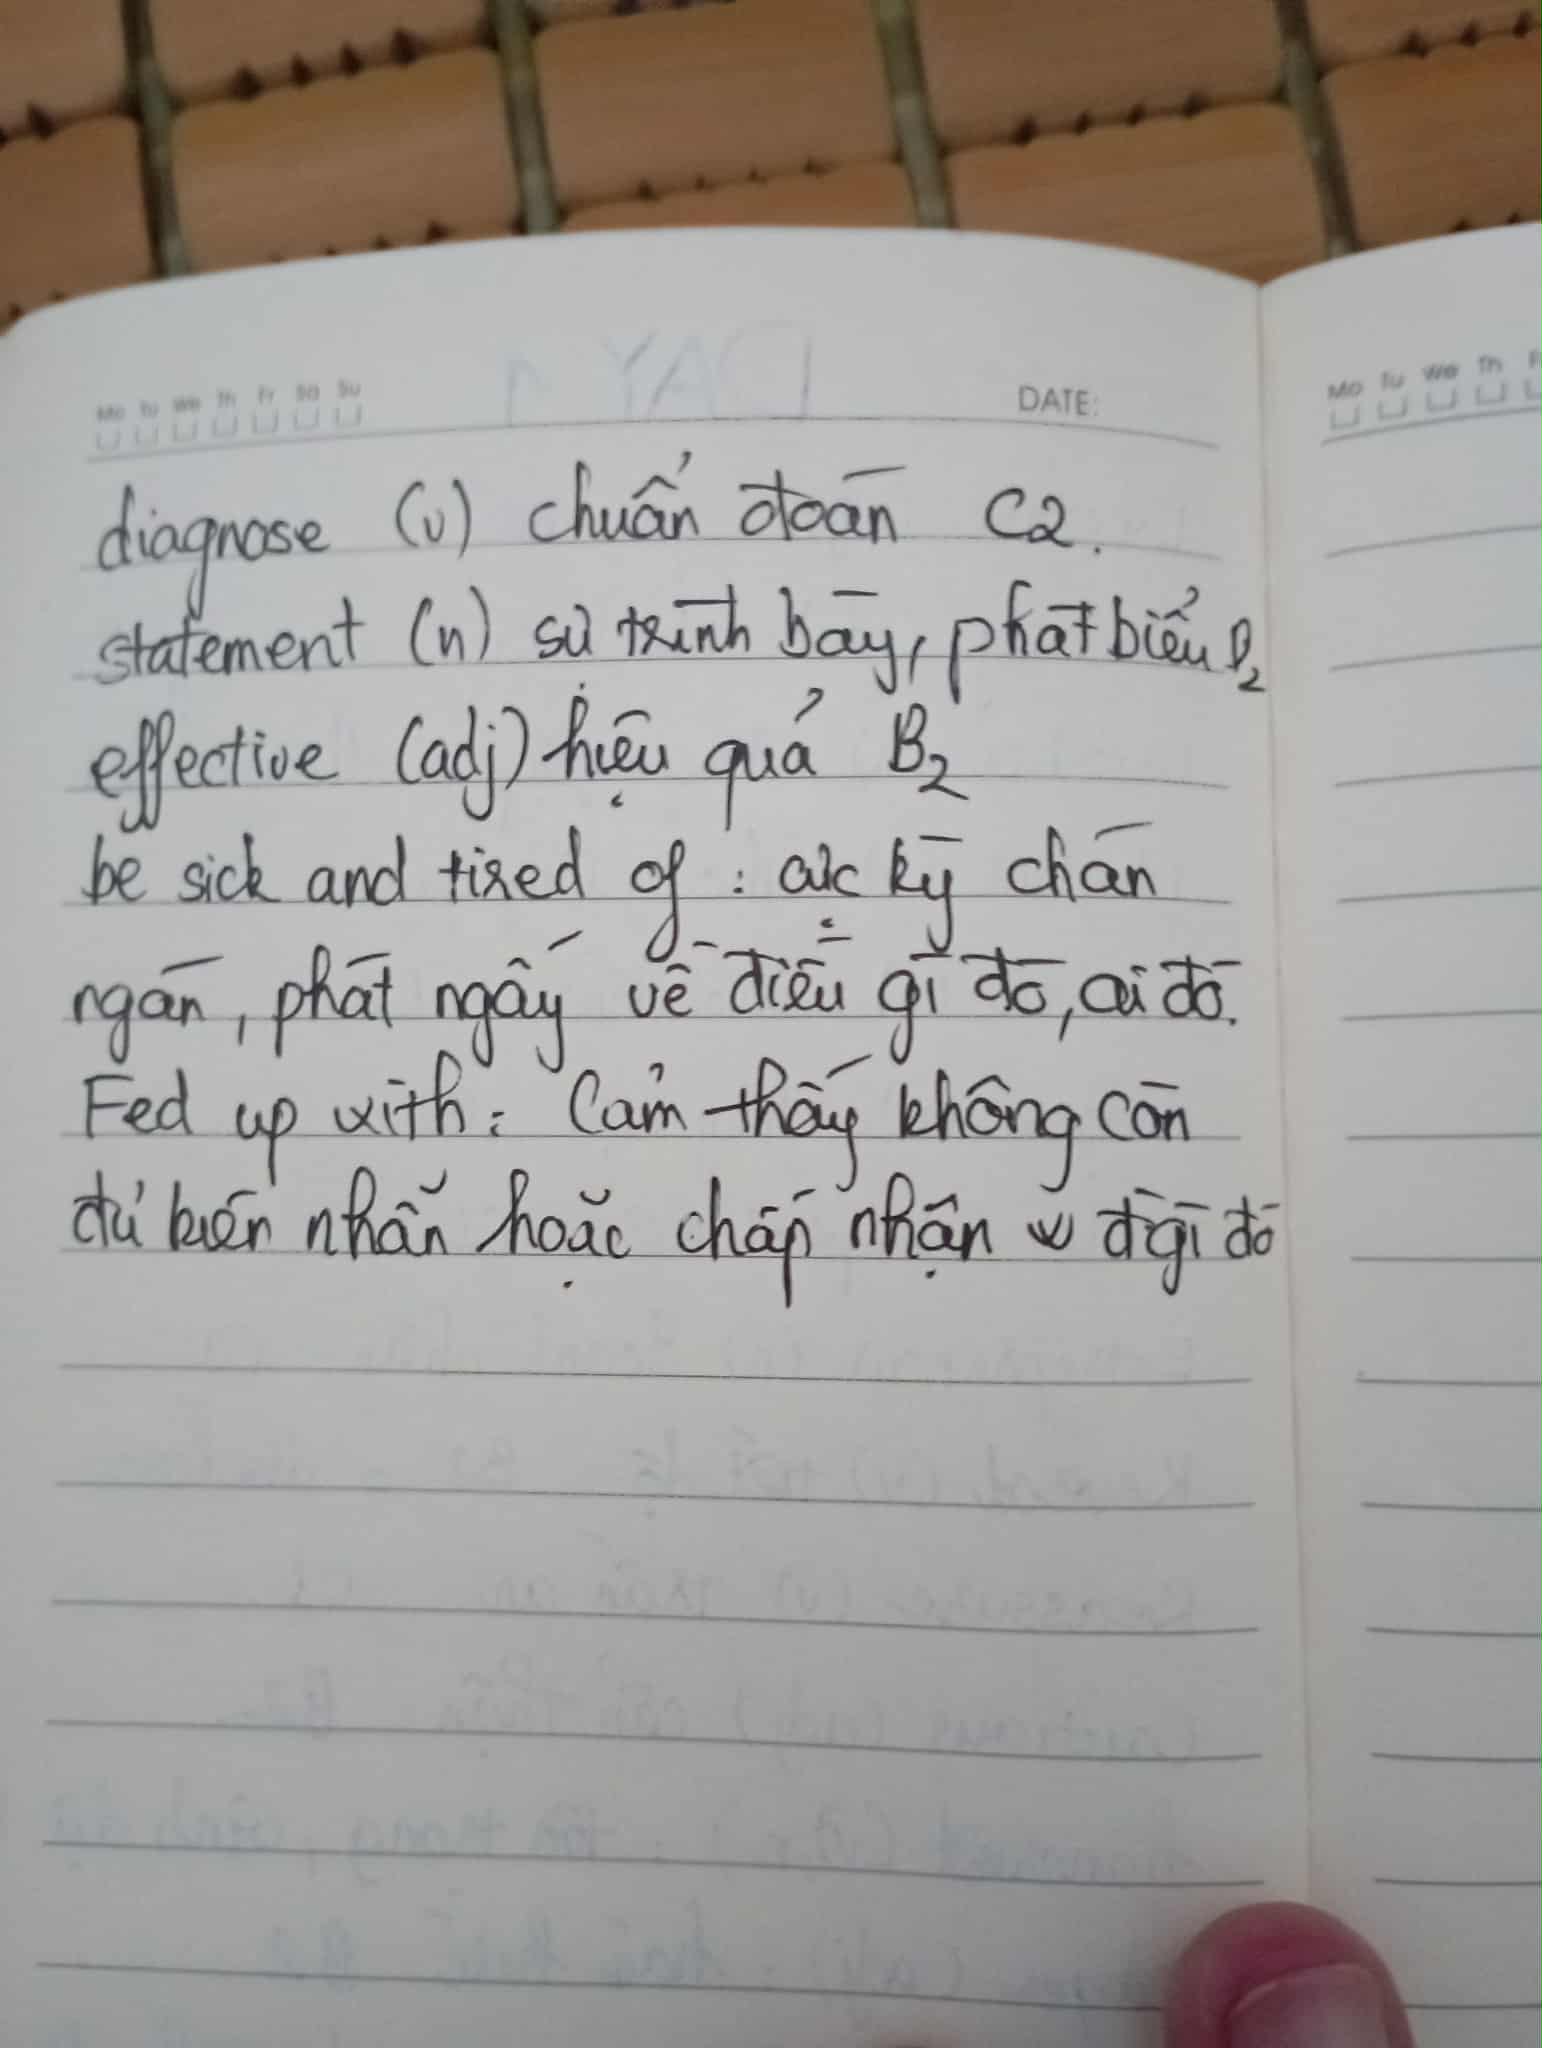 Mo Tu We Th Fr Sa Su DATE:
diagnose (v) chuẩn đoán C2.
statement (n) sự trình bày, phát biểu B2
effective (adj) hiệu quả B2
be sick and tired of : cực kỳ chán
ngán, phát ngấy về điều gì đó, ai đó.
Fed up with : Cảm thấy không còn
đủ kiên nhẫn hoặc chấp nhận gì đó
Mo Tu We Th